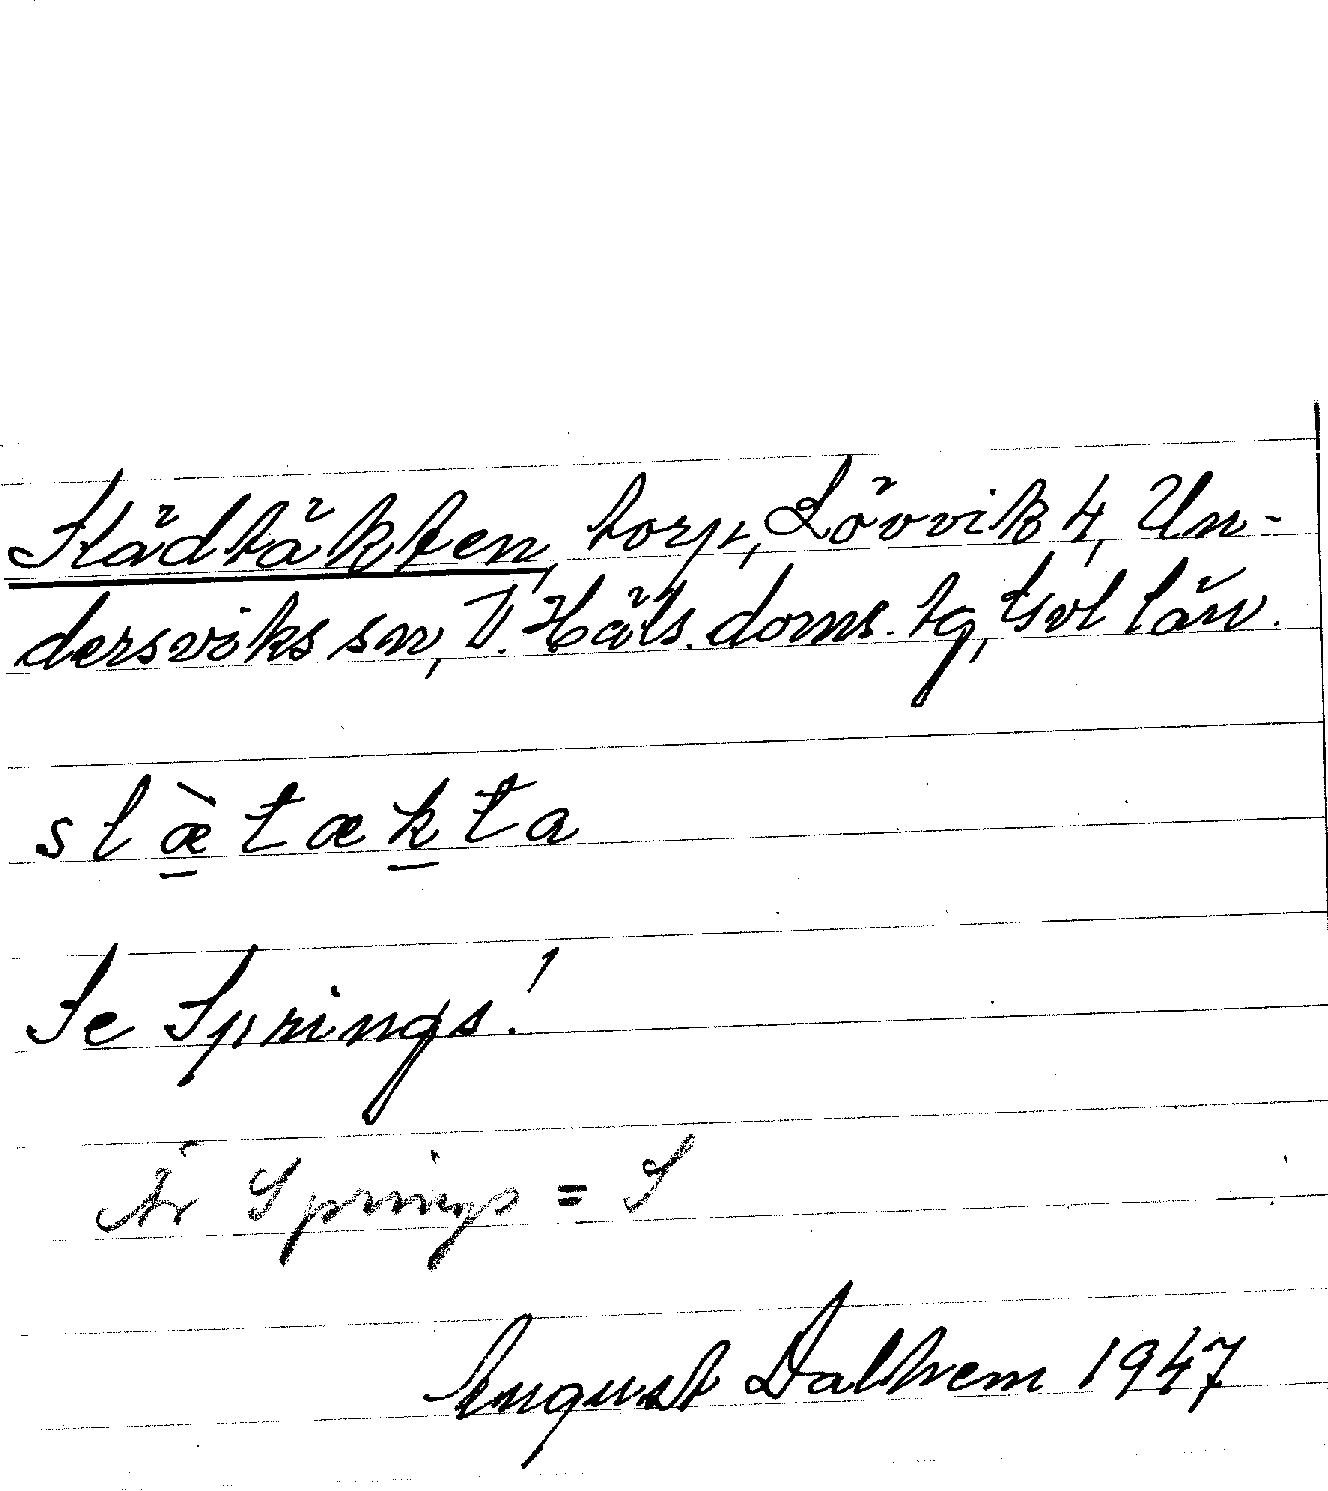 Slädtäkten, torp, Lövvik 4, Un-
dersviks sn, V. Häls. doms. tg, Gvl län.
slæ̀tækta
Se Springs!
Är Springs = S
August Dalhem 1947